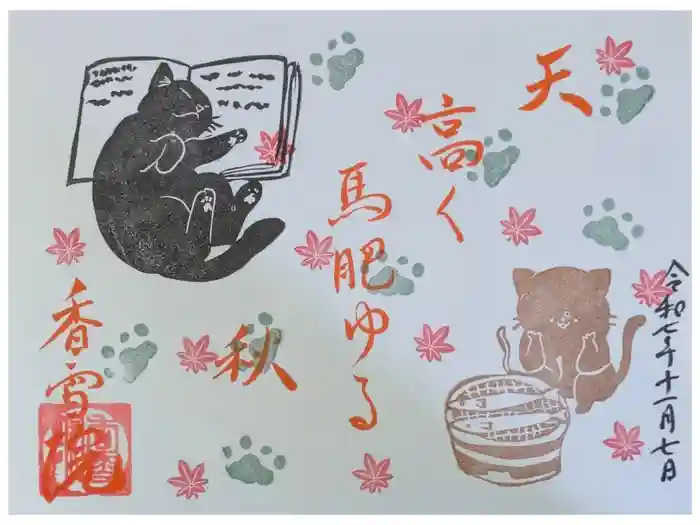 令和七年十一月七日
天
高く
馬肥ゆる
秋
香雪院